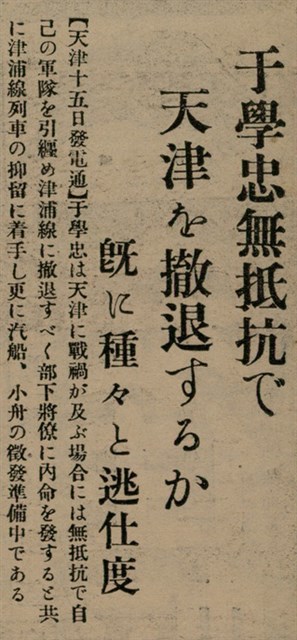 于學忠無抵抗で
天津を撤退するか
既に種々と逃仕度
【天津十五日發電通】于學忠は天津に戰禍が及ぶ場合には無抵抗で自
己の軍隊を引纒め津浦線に撤退すべく部下將僚に內命を發すると共
に津浦線列車の抑留に着手し更に汽船、小舟の徵發準備中である